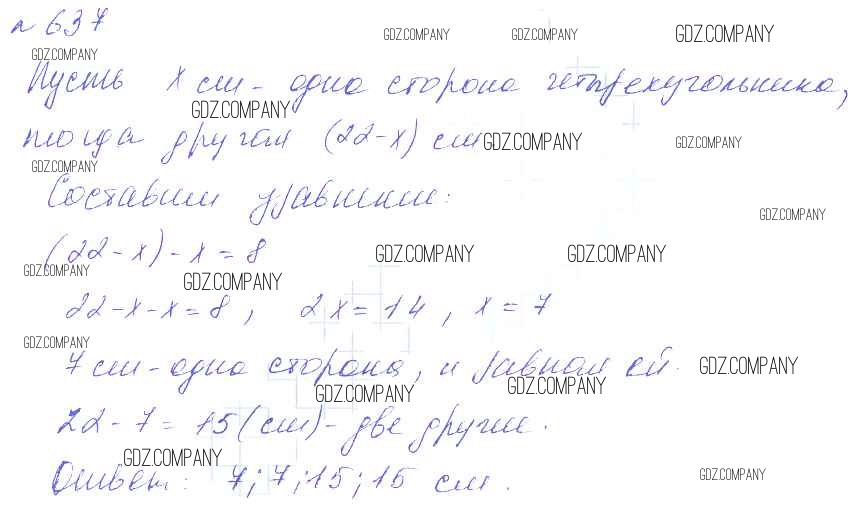 № 637
GDZ.COMPANY GDZ.COMPANY GDZ.COMPANY
GDZ.COMPANY
Пусть x см - одна сторона четырехугольника,
GDZ.COMPANY
тогда другая (22-x) см GDZ.COMPANY GDZ.COMPANY
GDZ.COMPANY
Составим уравнение:
GDZ.COMPANY
(22-x)-x=8 GDZ.COMPANY GDZ.COMPANY
GDZ.COMPANY GDZ.COMPANY
22-x-x=8, 2x=14, x=7
GDZ.COMPANY
7 см - одна сторона, и равная ей. GDZ.COMPANY
GDZ.COMPANY GDZ.COMPANY
22-7=15(см)- две другие.
GDZ.COMPANY
Ответ: 7;7;15;15 см. GDZ.COMPANY